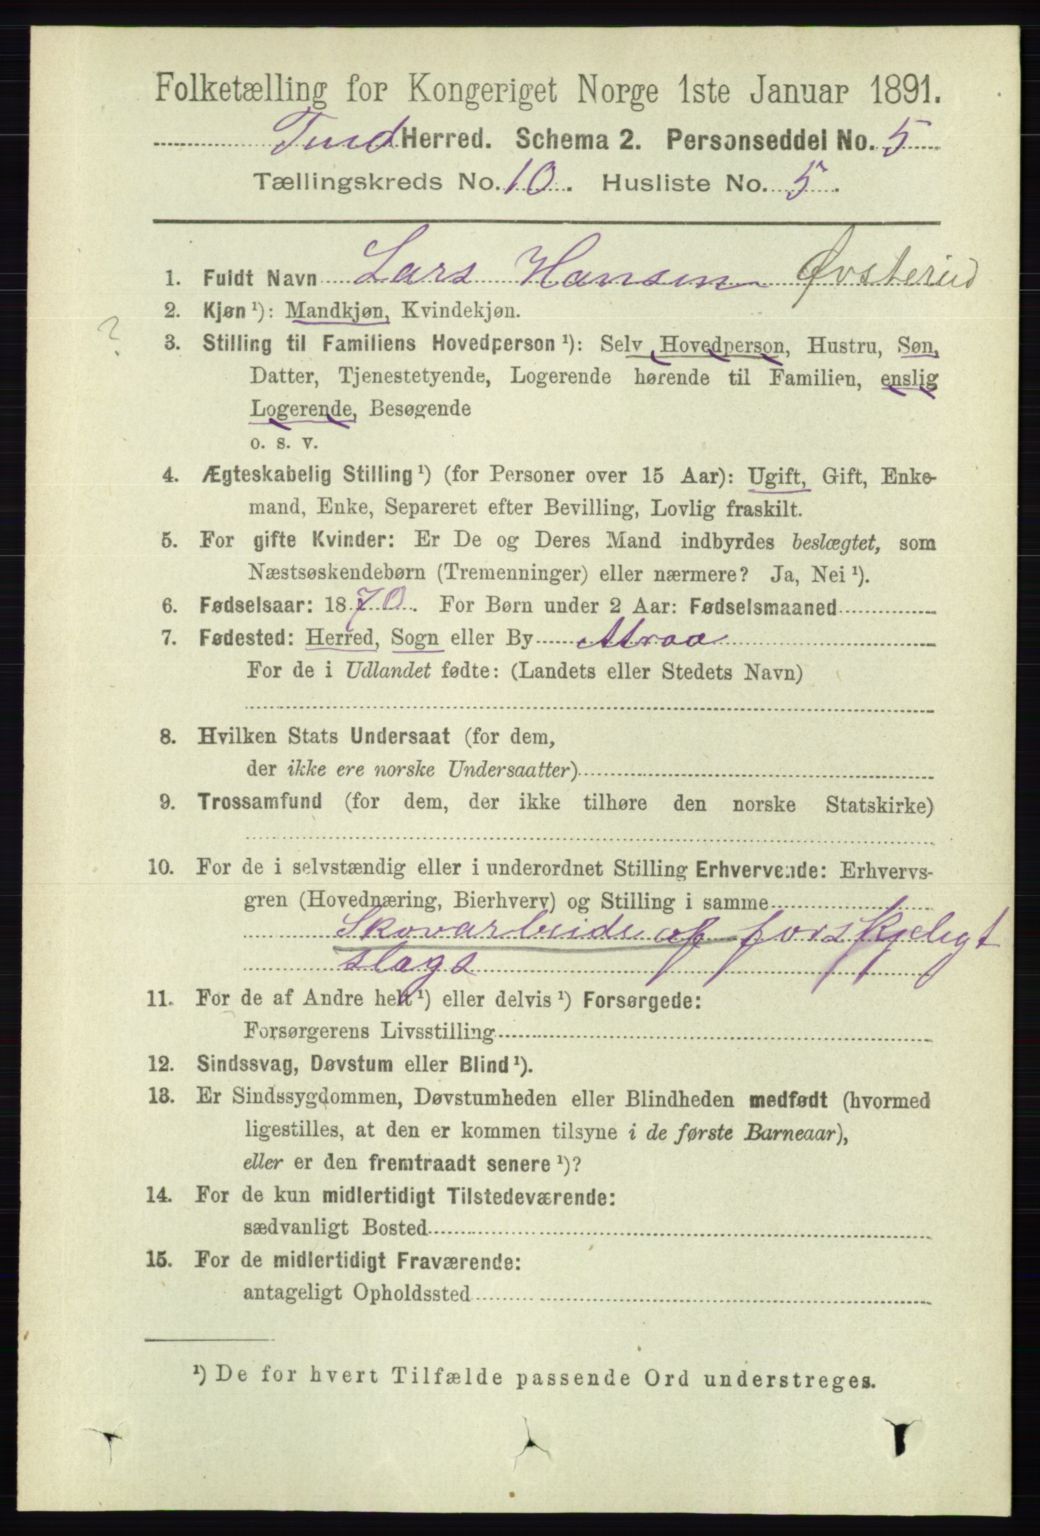 Folketælling for Kongeriget Norge 1ste Januar 1891.
Tind Herred. Schema 2. Personseddel No. 5
Tællingskreds No. 10. Husliste No. 5.
1. Fuldt Navn Lars Hansen Øvsterud
2. Kjøn¹): Mandkjøn, Kvindekjøn.
?
3. Stilling til Familiens Hovedperson¹): Selv Hovedperson, Hustru, Søn,
Datter, Tjenestetyende, Logerende hørende til Familien, enslig
Logerende, Besøgende
o. s. v.
4. Ægteskabelig Stilling¹) (for Personer over 15 Aar): Ugift, Gift, Enke-
mand, Enke, Separeret efter Bevilling, Lovlig fraskilt.
5. For gifte Kvinder: Er De og Deres Mand indbyrdes beslægtet, som
Næstsøskendebørn (Tremenninger) eller nærmere? Ja, Nei¹).
6. Fødselsaar: 1870. For Børn under 2 Aar: Fødselsmaaned
7. Fødested: Herred, Sogn eller By Atraa
For de i Udlandet fødte: (Landets eller Stedets Navn)
8. Hvilken Stats Undersaat (for dem,
der ikke ere norske Undersaatter)
9. Trossamfund (for dem, der ikke tilhøre den norske Statskirke)
10. For de i selvstændig eller i underordnet Stilling Erhvervende: Erhvervs-
gren (Hovednæring, Bierhverv) og Stilling i samme
Skovarbeide af forskjeligt
slags
11. For de af Andre helt¹) eller delvis¹) Forsørgede:
Forsørgerens Livsstilling
12. Sindssvag, Døvstum eller Blind¹).
13. Er Sindssygdommen, Døvstumheden eller Blindheden medfødt (hvormed
ligestilles, at den er kommen tilsyne i de første Barneaar),
eller er den fremtraadt senere¹)?
14. For de kun midlertidigt Tilstedeværende:
sædvanligt Bosted
15. For de midlertidigt Fraværende:
antageligt Opholdssted
¹) De for hvert Tilfælde passende Ord understreges.